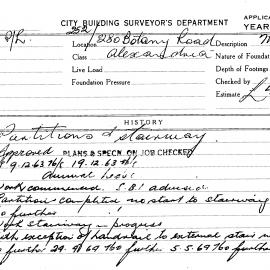 CITY BUILDING SURVEYOR'S DEPARTMENT
APPLICA
YEAR
D/L. Location 252/8280 Botany Road Description
Class Alexandria Nature of Foundat
Live Load Depth of Footings
Foundation Pressure Checked by
Estimate
HISTORY
Partitions & stairway
Approved PLANS & SPECN. ON JOB CHECKED
9.12.63 19.12.63
Work commenced. S.B.I advised
Partition completed no start to stairway
further
stairway in progress
with exception of handrail to external stairs
further 29.4.69 No further 5.5.69 No further